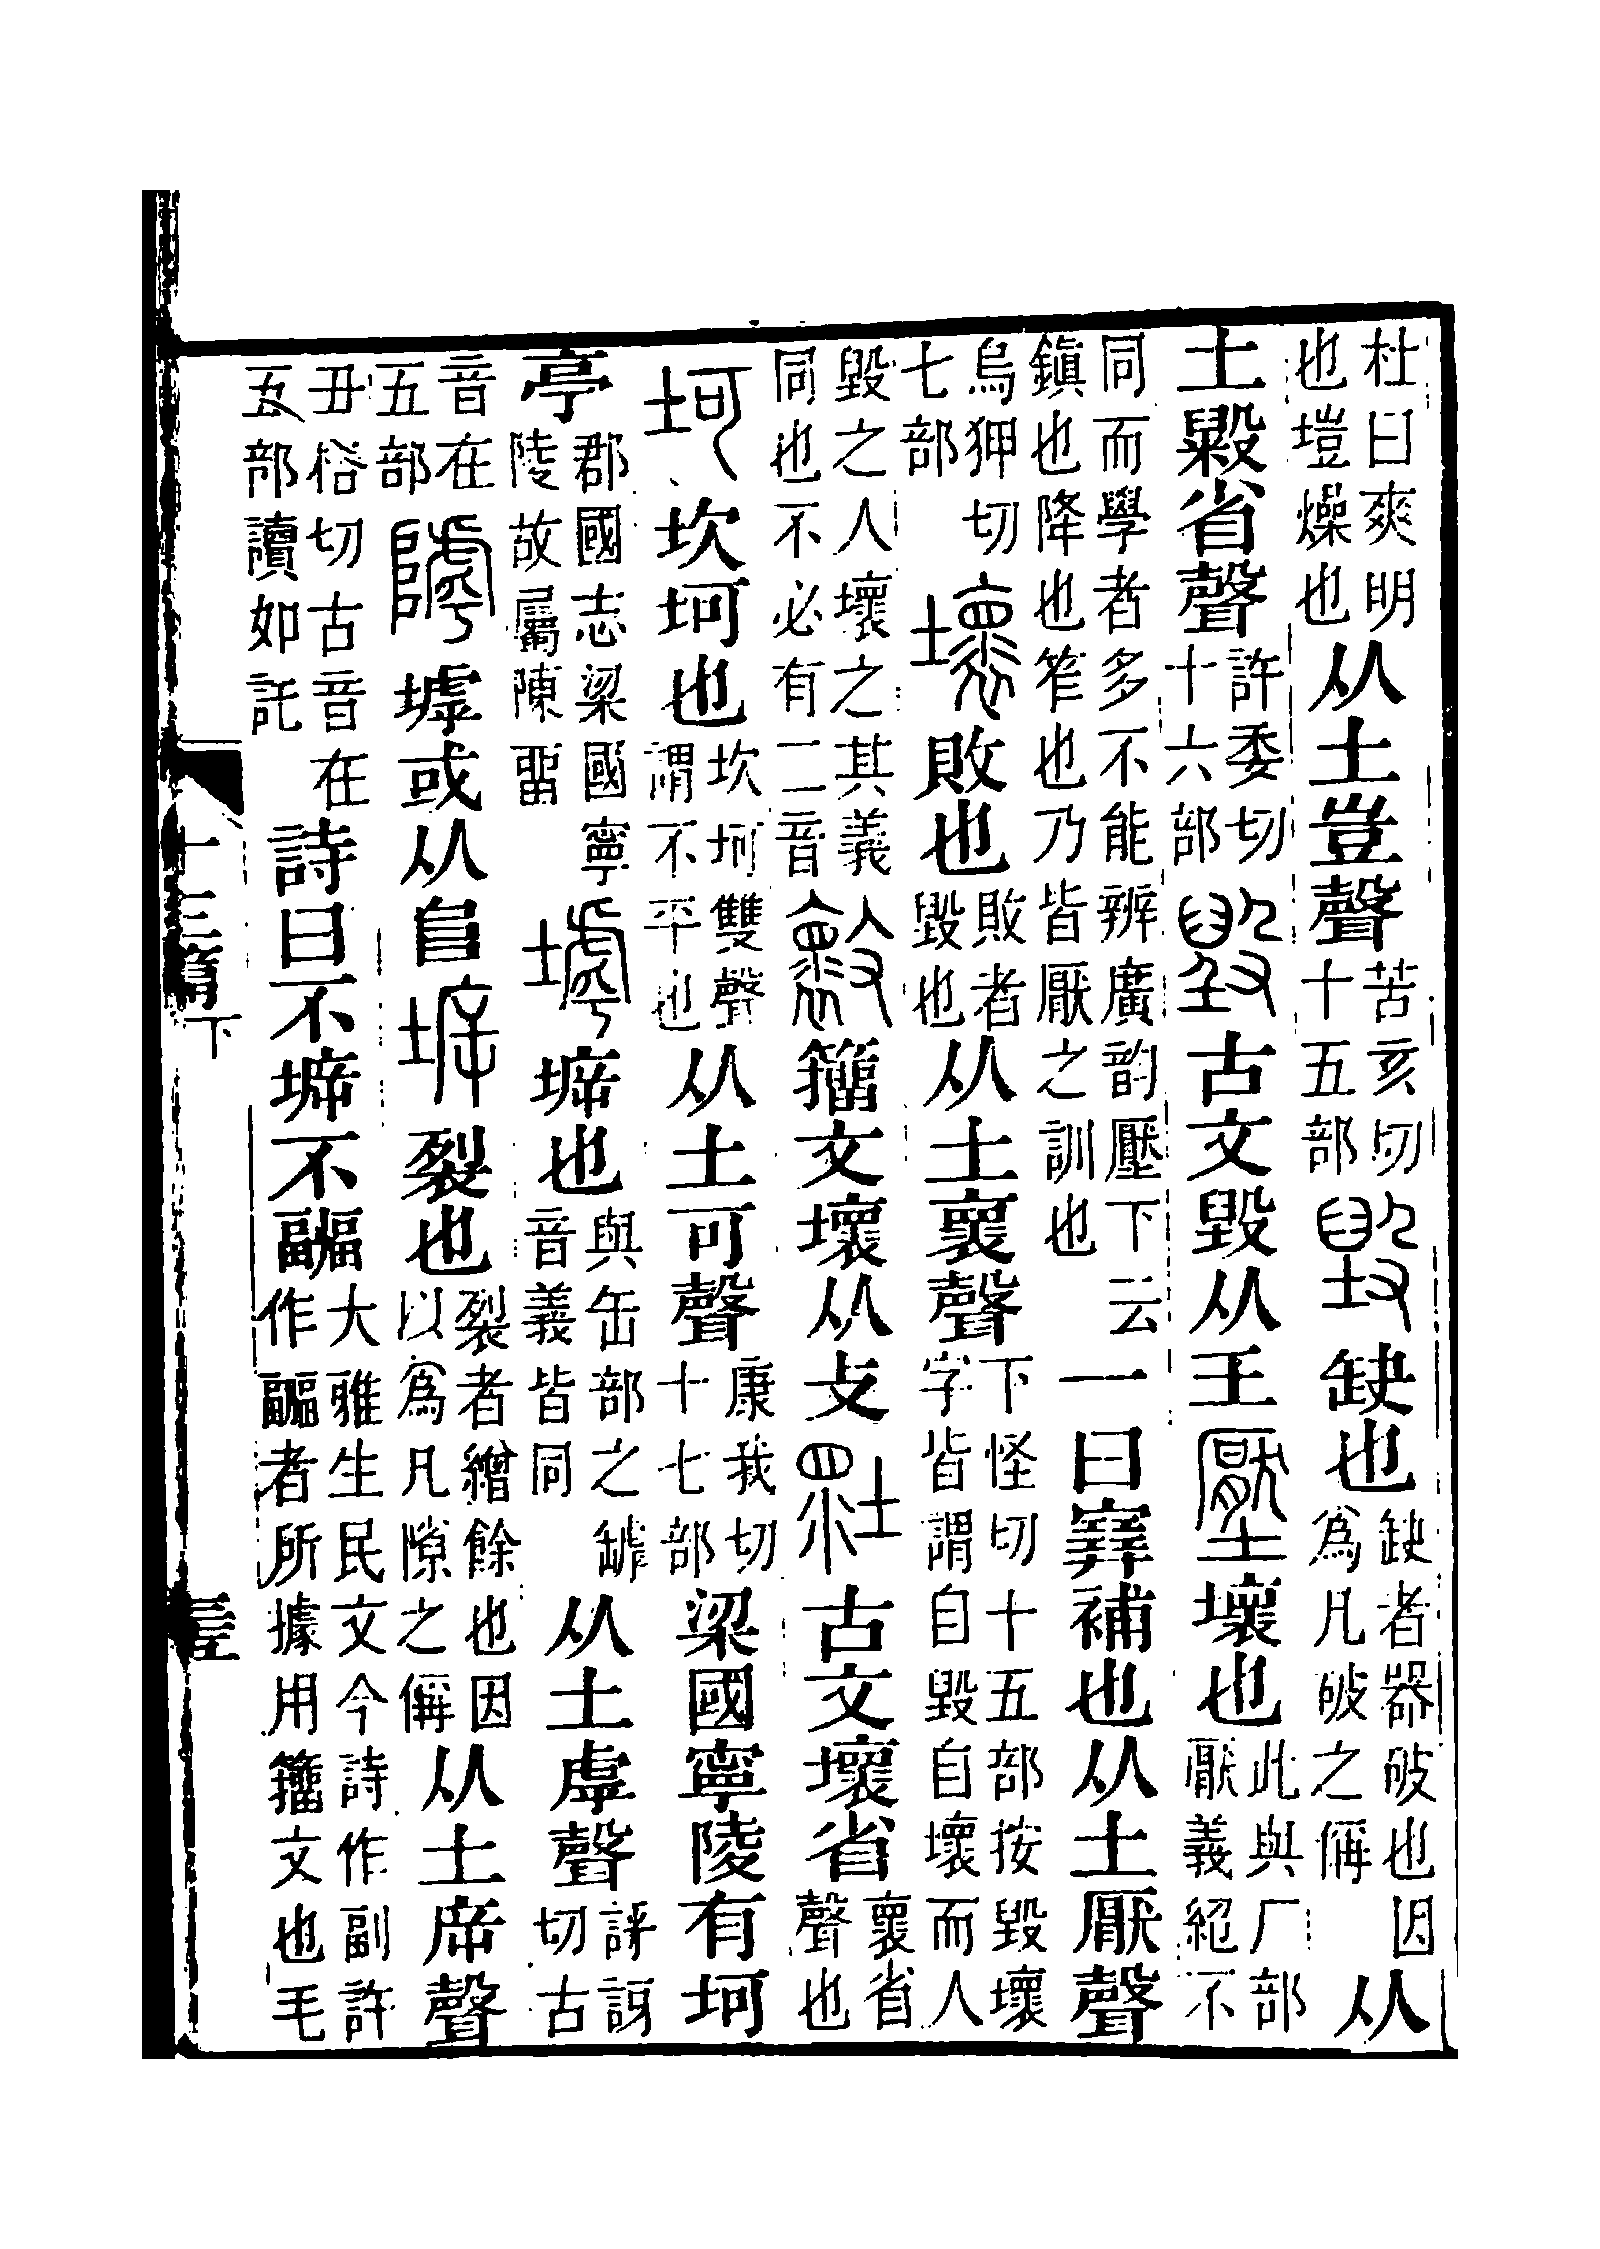 杜曰爽明也塏燥也从土豈聲苦亥切十五部毀缺也缺者器破也因爲凡破之偁从
土毇省聲許委切十六部古文毀从王壓壞也此與厂部厭義絕不
同而學者多不能辨廣韵壓下云鎮也降也笮也乃皆厭之訓也一曰𡫳補也从土厭聲
烏狎切七部壞敗也敗者毀也从土褱聲下怪切十五部按毀壞字皆謂自毀自壞而人
毀之人壞之其義同也不必有二音籒文壞从攴古文壞省褱省聲也
坷坎坷也坎坷雙聲謂不平也从土可聲康我切十七部梁國寧陵有坷
亭郡國志梁國寧陵故屬陳畱㙤𡍩也與缶部之罅音義皆同从土虖聲評訝切古
音在五部㙤或从𨸏𡍩裂也裂者繒餘也因以爲凡隙之偁从土㡿聲
丑俗切古音在五部讀如託詩曰不𡍩不疈大雅生民文今詩作副許作疈者所據用籒文也毛
十三篇下